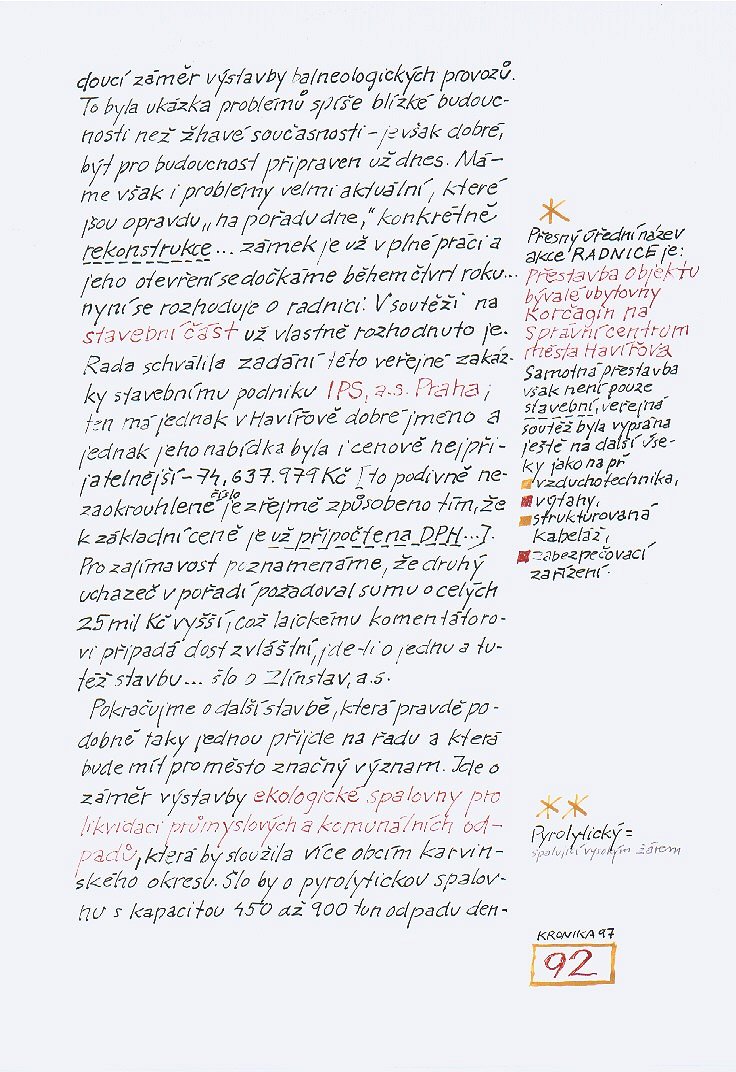 doucí záměr výstavby balneologických provozů.
To byla ukázka problémů spíše blízké budouc-
nosti než žhavé současnosti - je však dobré,
být pro budoucnost připraven už dnes. Má-
me však i problémy velmi aktuální, které
jsou opravdu „na pořadu dne," konkrétně
rekonstrukce... zámek je už v plné práci a
jeho otevření se dočkáme během čtvrt roku...
nyní se rozhoduje o radnici. V soutěži na
stavební část už vlastně rozhodnuto je.
Rada schválila zadání této veřejné zakáz-
ky stavebnímu podniku IPS, a.s. Praha;
ten má jednak v Havířově dobré jméno a
jednak jeho nabídka byla i cenově nejpři-
jatelnější - 74,637.979 Kč [to podivně ne-
zaokrouhlené číslo je zřejmě způsobeno tím, že
k základní ceně je už připočtena DPH...].
Pro zajímavost poznamenáme, že druhý
uchazeč v pořadí požadoval sumu o celých
25 mil Kč vyšší, což laickému komentátoro-
vi připadá dost zvláštní, jde-li o jednu a tu-
též stavbu... šlo o Zlínstav, a.s.
Pokračujme o další stavbě, která pravdě po-
dobně taky jednou přijde na řadu a která
bude mít pro město značný význam. Jde o
záměr výstavby ekologické spalovny pro
likvidaci průmyslových a komunálních od-
padů, která by sloužila více obcím karvin-
ského okresu. Šlo by o pyrolytickou spalov-
nu s kapacitou 450 až 900 tun odpadu den-
*
Přesný úřední název
akce RADNICE je:
Přestavba objektu
bývalé ubytovny
Korčagin na
Správní centrum
města Havířova
Samotná přestavba
však není pouze
stavební, veřejná
soutěž byla vypsána
ještě na další úse-
ky jako na př
vzduchotechnika,
výtahy,
strukturovaná
kabeláž,
zabezpečovací
zařízení.
**
Pyrolytický =
spalující vysokým žárem
KRONIKA 97
92